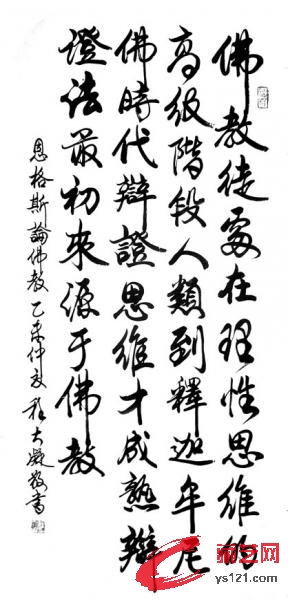 佛教徒處在理性思維的
高级階段人類到釋迦牟尼
佛時代辯證思維才成熟辯
證法最初來源于佛教
恩格斯論佛教 乙未仲夏 大 書
ys121.com